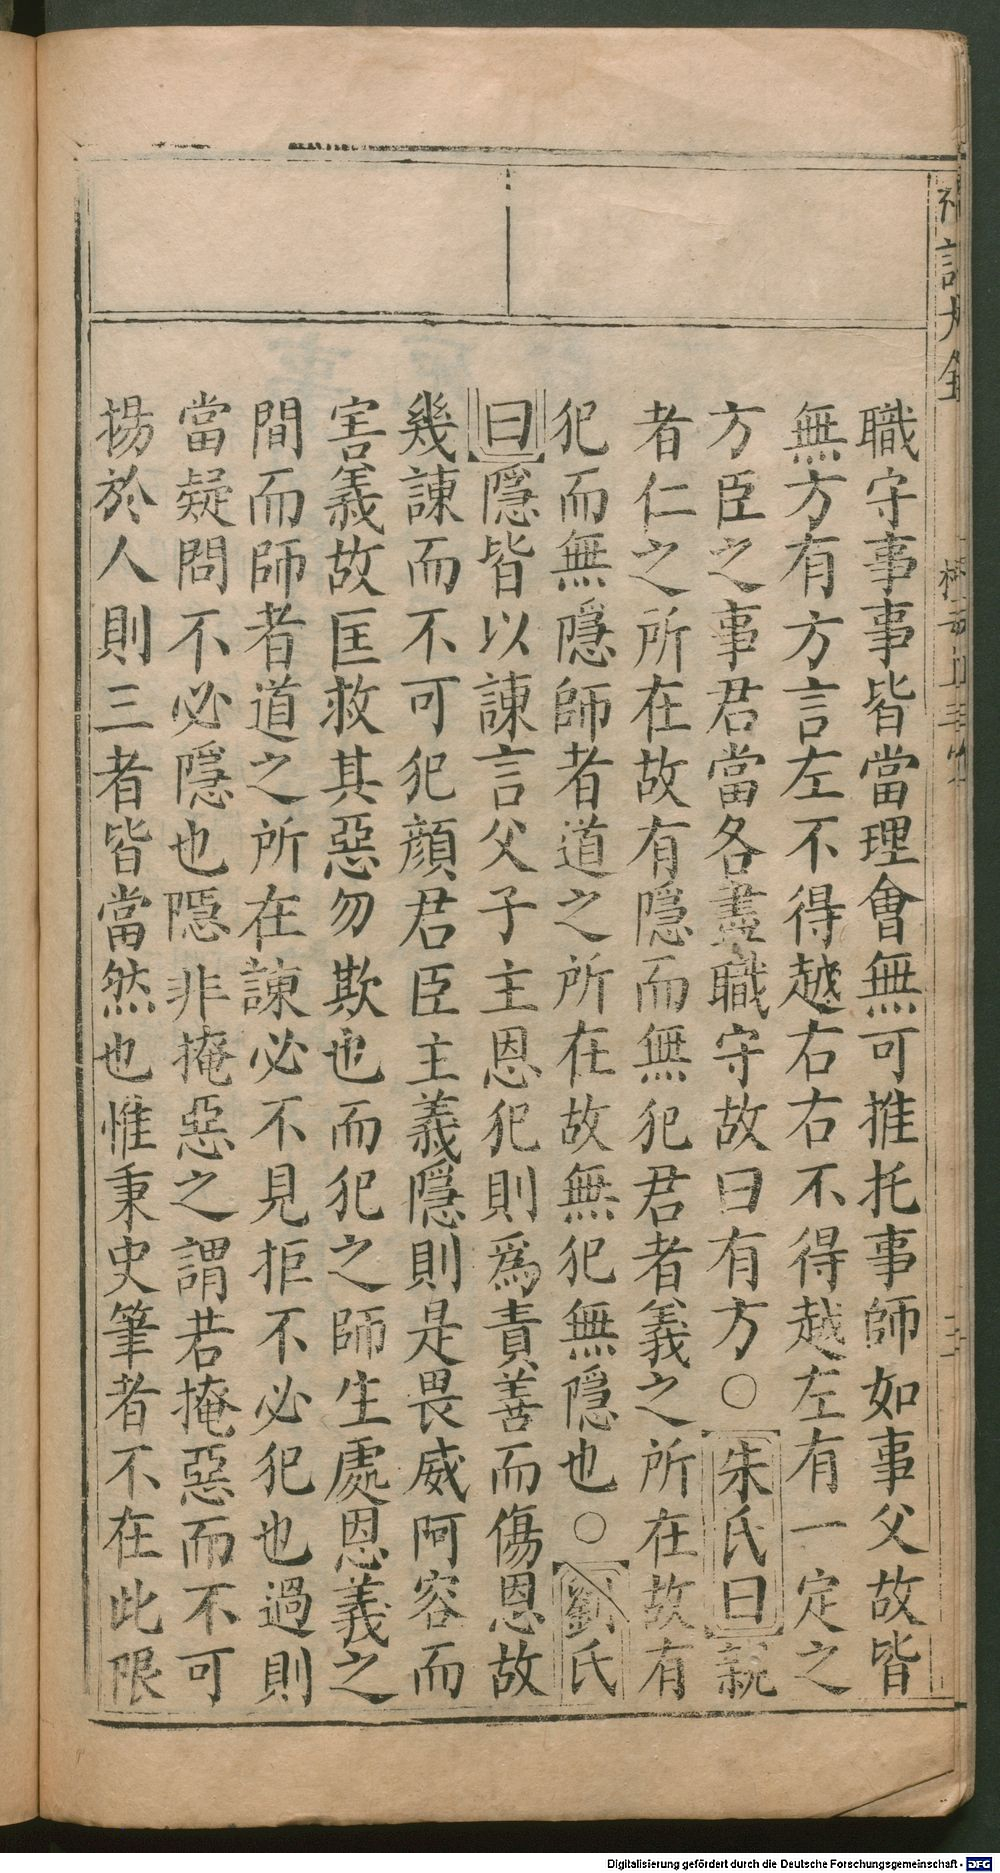 禮記大全
檀弓上第三
職守事事皆當理會無可推托事師如事父故皆
無方有方言左不得越右右不得越左有一定之
方臣之事君當各盡職守故曰有方○朱氏曰親
者仁之所在故有隱而無犯君者義之所在故有
犯而無隱師者道之所在故無犯無隱也○劉氏
曰隱皆以諫言父子主恩犯則爲責善而傷恩故
幾諫而不可犯顔君臣主義隱則是畏威阿容而
害義故匡救其惡勿欺也而犯之師生處恩義之
間而師者道之所在諫必不見拒不必犯也過則
當疑問不必隱也隱非掩惡之謂若掩惡而不可
揚於人則三者皆當然也惟秉史筆者不在此限
Digitalisierung gefördert durch die Deutsche Forschungsgemeinschaft - DFG